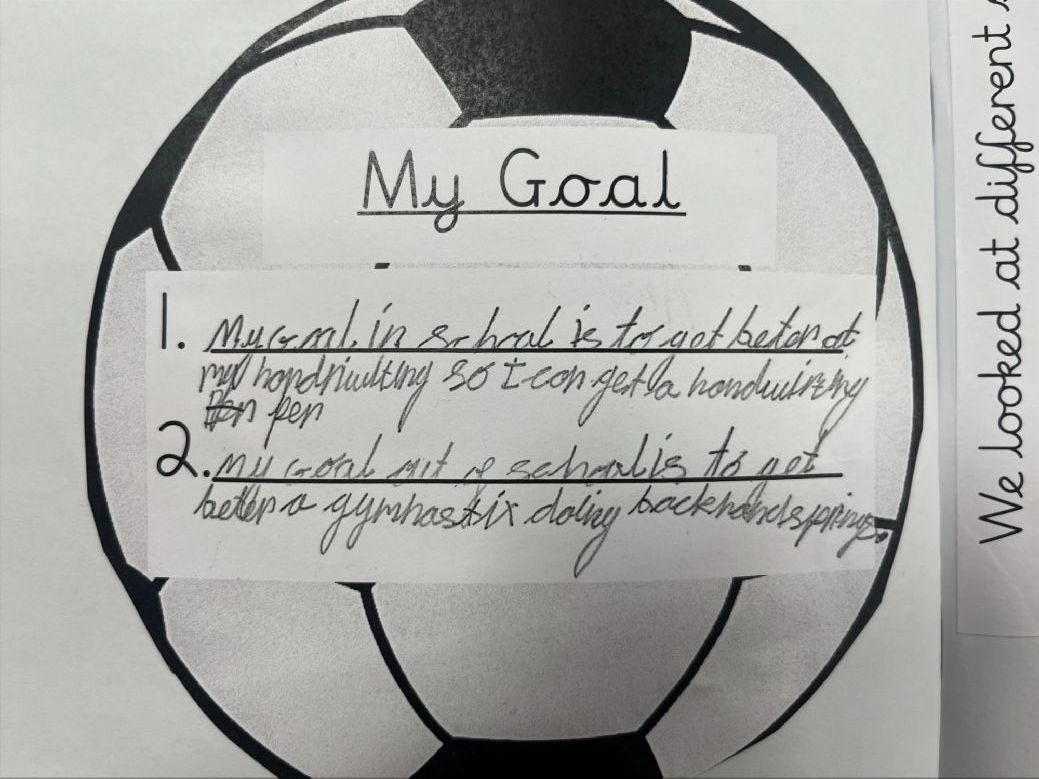 My Goal
1. My Goal in school is to get beter at
my handriwiting so I can get a handwiriting
pen pen
2. My Goal out of school is to get
better a gymnastix doing backhandsprings.
We looked at different